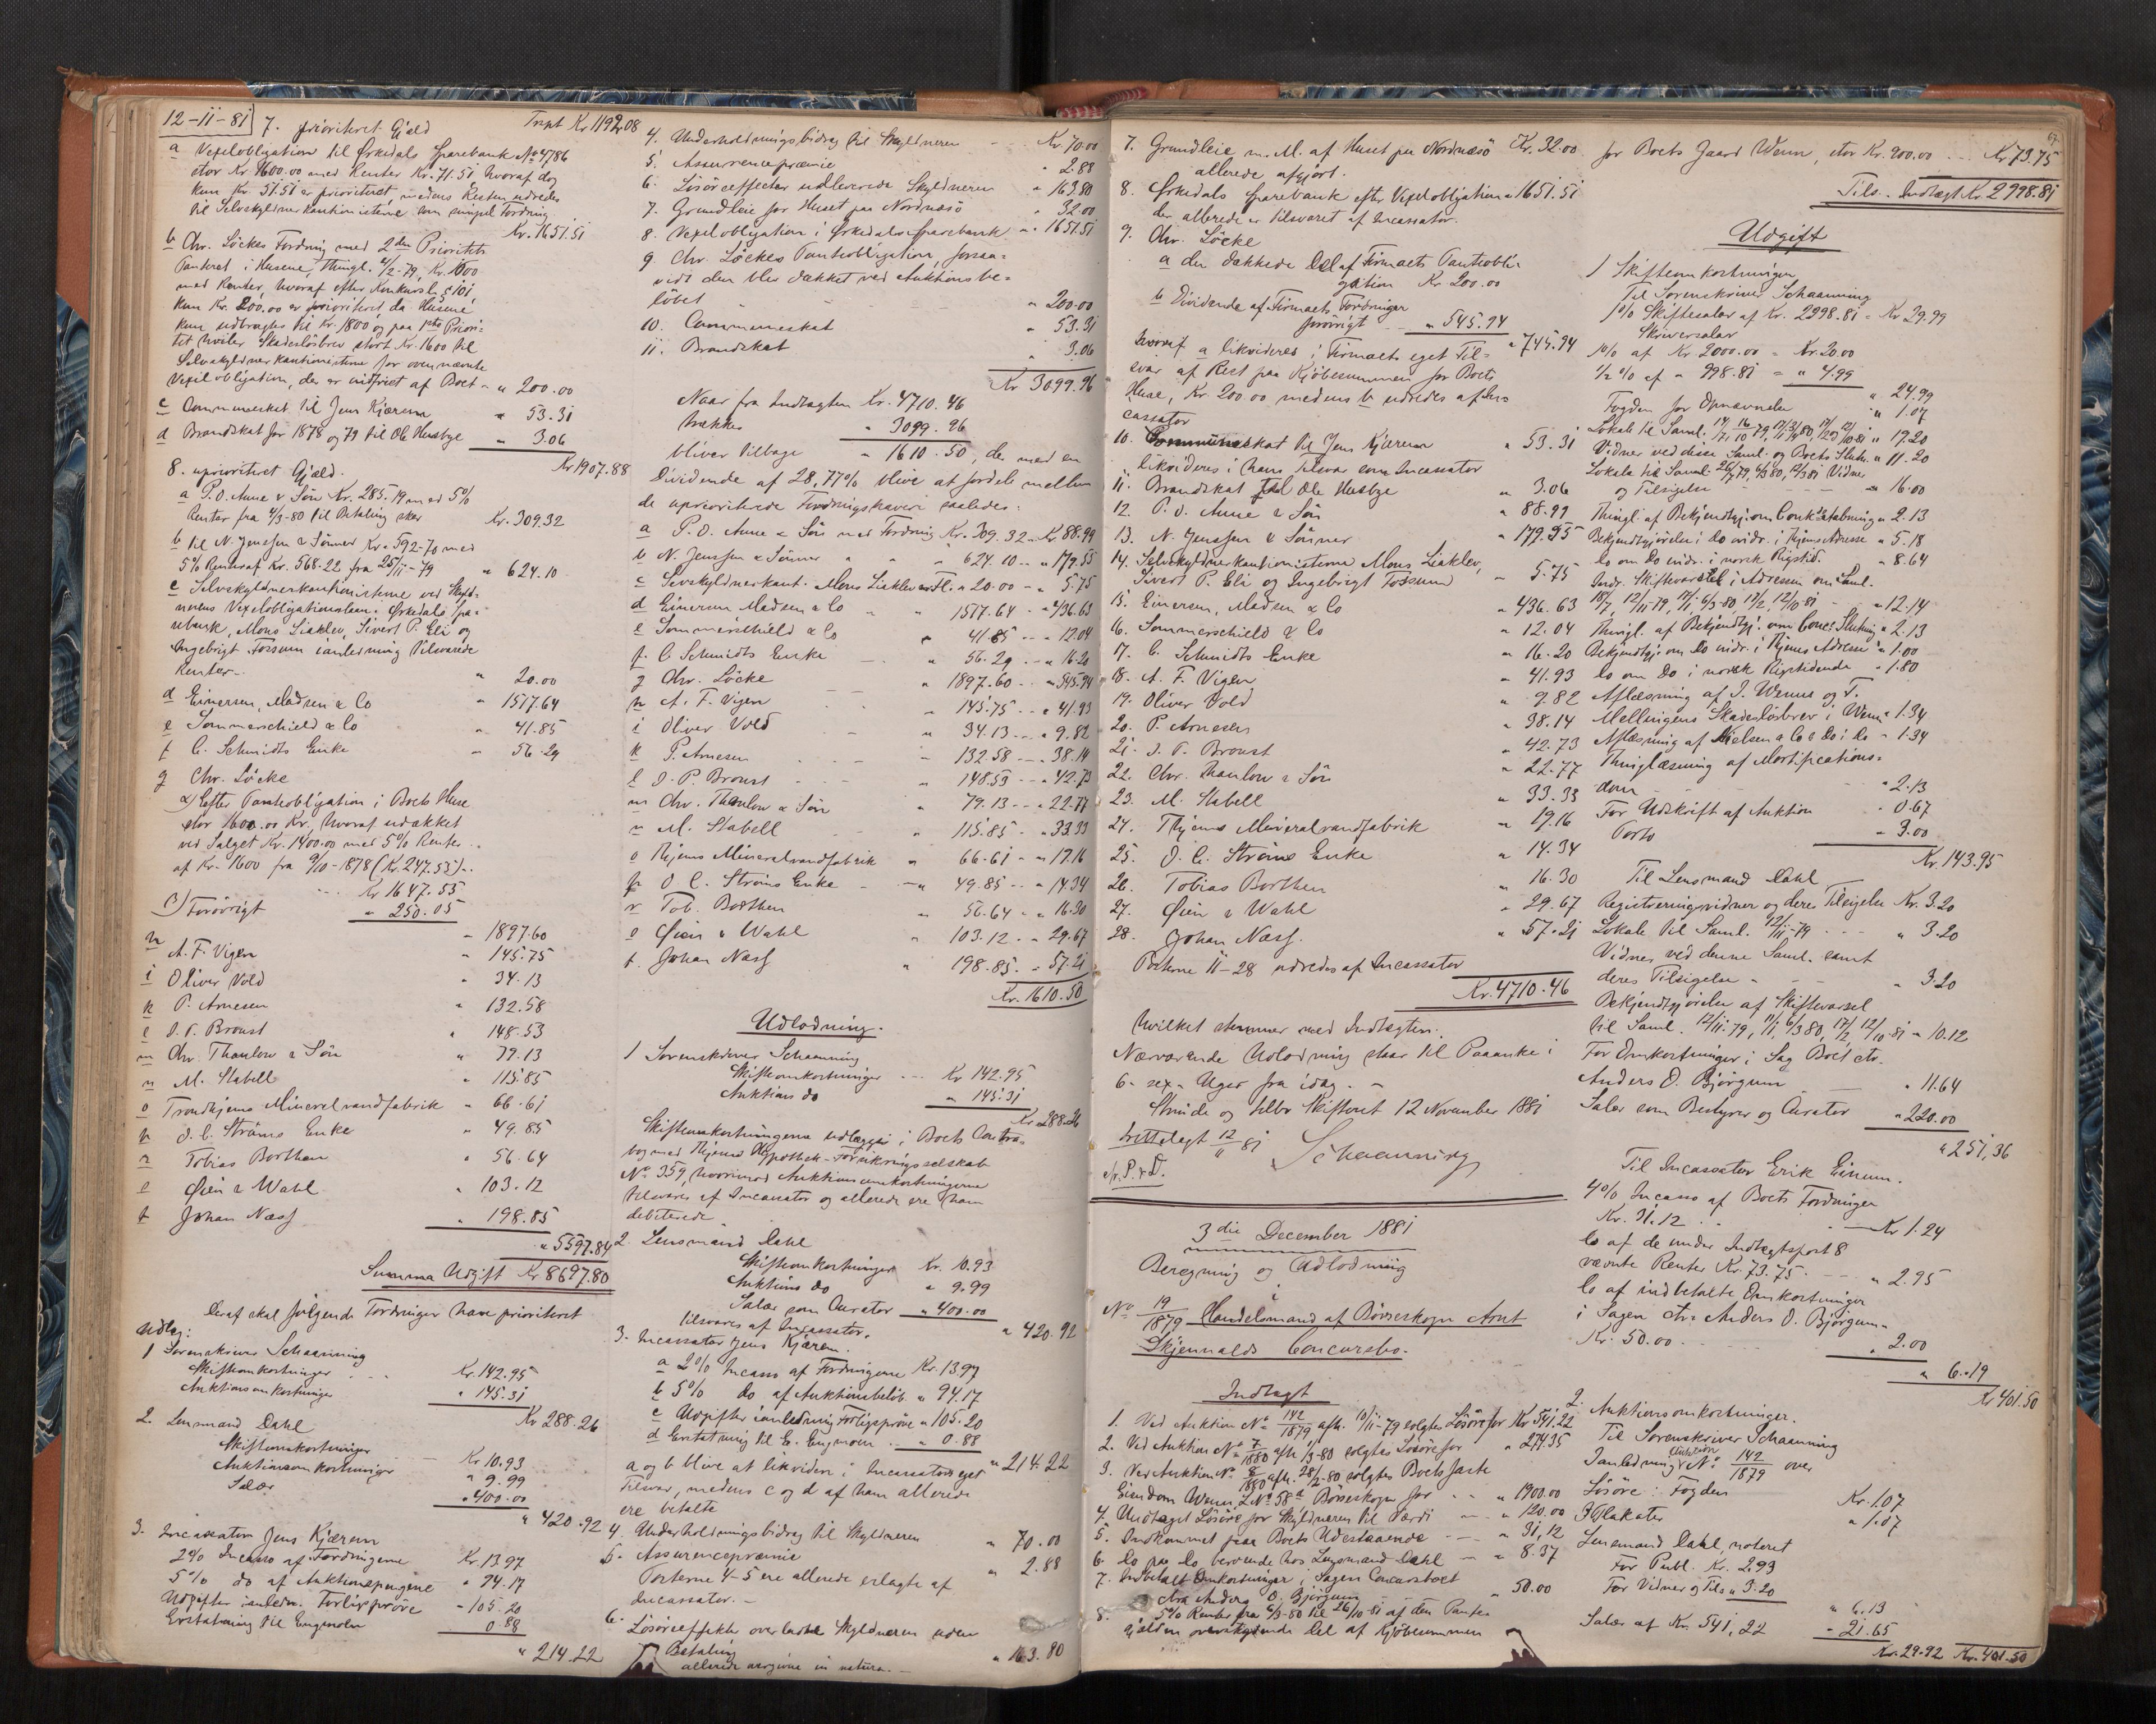 12-11-81 7. prioriteret Gjæld Trspt Kr. 1192.08
a Vexelobligation til Ørkedals Sparebank No 4786
stor Kr. 1600.00 med Renter Kr. 71.51 hvoraf dog
kun Kr. 51.51 er prioriteret, medens Resten udredes
til Selvskyldnerkautionisterne som simpel Fordring
Kr. 1651.51
b Chr. Löckes Fordring med 2den Prioritets
Panteret i Husene, thingl. 4/2-79, Kr. 1600
med Renter, hvoraf efter Konkursl. § 101,
kun Kr. 200.00 er prioriteret, da Husene
kun udbragtes til Kr. 1800 og paa 1ste Priori-
tet hviler Skadeslösbrev stort Kr. 1600 til
Selvskyldnerkautionisterne for ovennævnte
Vexelobligation, der er indfriet af Boet " 200.00
c Communeskat til Jens Kjærem " 53.31
d Brandskat for 1878 og 79 til Ole Husbye " 3.06
Kr 1907.88
8. uprioriteret Gjæld.
a P. O. Aune & Sön Kr. 285.19 med 5%
Renter fra 4/3-80 til Betaling sker Kr. 309.32
b til N. Jenssen & Sönner Kr. 592-70 med
5% Renter af Kr. 568.22 fra 25/11-79 " 624.10
c Selvskyldnerkautionisterne ved Skyld-
nerens Vexelobligationslaan i Ørkedals Spa-
rebank, Mons Liaklev, Sivert P. Eli og
Ingebrigt Fossum i anledning tilsvarede
Renter " 20.00
d Einersen, Madsen & Co " 1517.64
e Sommerschield & Co " 41.85
f C. Schmidts Enke " 56.29
g Chr. Löcke
α) Efter Panteobligation i Boets Huse
stor 1600.00 Kr., hvoraf udækket
ved Salget Kr. 1400.00 med 5% Renter
af Kr. 1600 fra 9/10-1878 (Kr. 247.55)
Kr 1647.55
β) Forövrigt " 250.05
" 1897.60
h A. F. Vigen " 145.75
i Oliver Vold " 34.13
k P. Arnesen " 132.58
l J. P. Broust " 148.53
m Chr. Thaulow & Sön " 79.13
n M. Stabell " 115.85
o Trondhjems Mineralvandfabrik " 66.61
p O. C. Ströms Enke " 49.85
r Tobias Borthen " 56.64
s Øien & Wahl " 103.12
t Johan Næss " 198.85
" 5597.84
Summa Udgift Kr 8697.80
Deraf skal fölgende Fordringer have prioriteret
Udlæg:
1 Sorenskriver Schaanning
Skifteomkostninger Kr. 142.95
Auktionsomkostninger " 145.31
Kr 288.26
2. Lensmand Dahl
Skifteomkostninger Kr 10.93
Auktionsomkostninger " 9.99
Salær " 400.00
" 420.92
3. Incassator Jens Kjærem
2% Incasso af Fordringerne Kr. 13.97
5% do af Auktionspengene " 94.17
Udgifter i anledn. Forligspröve " 105.20
Erstatning til Engmoen 0.88
" 214.22
4. Underholdningsbidrag til Skyldneren Kr 70.00
5. Assurancepræmie " 2.88
6. Lösöreeffecter udleverede Skyldneren " 163.80
7. Grundleie for Huset paa Nordnæsö " 32.00
8. Vexelobligation i Ørkedals Sparebank " 1651.51
9 Chr. Löckes Panteobligation, forsaa-
vidt den blev dækket ved Auktionsbe-
löbet " 200.00
10. Communeskat " 53.31
11. Brandskat " 3.06
Kr 3099.96
Naar fra Indtægten Kr. 4710.46
trækkes " 3099.96
bliver tilbage " 1610.50, der med en
Dividende af 28,77% blive at fordele mellem
de uprioriterede Fordringshavere saaledes:
a P. O. Aune & Sön med Fordring Kr. 309.32 Kr 88.99
b N. Jenssen & Sönner " " 624.10 " 179.55
c Selvskyldnerkaut. Mons Liaklev m. Fl. " 20.00 " 5.75
d Einersen Madsen & Co " " 1517.64 " 436.63
e Sommerschield & Co " 41.85 " 12.04
f. C. Schmidts Enke " 56.29 " 16.20
g Chr. Löcke " 1897.60 " 545.94
h A. F. Vigen " 145.75 " 41.93
i Oliver Vold " 34.13 " 9.82
k P. Arnesen " 132.58 " 38.14
l J. P. Broust " 148.53 " 42.73
m Chr. Thaulow & Sön " 79.13 " 22.77
n M. Stabell " 115.85 " 33.33
o Thjems Mineralvandfabrik " 66.61 " 19.16
p O. C. Ströms Enke " 49.85 " 14.34
r Tob. Borthen " 56.64 " 16.30
s Øien & Wahl " 103.12 " 29.67
t. Johan Næss " 198.85 " 57.21
Kr. 1610.50
Udlodning.
1 Sorenskriver Schaanning
Skifteomkostninger Kr 142.95
Auktions do " 145.31
Kr 288.26
Skifteomkostningerne udlægges i Boets Contra-
bog med Thjems Hypothek-Forsikringsselskab
No 359, hvorimod Auktionsomkostningerne
tilsvares af Incassator og allerede ere ham
debiterede
2. Lensmand Dahl
Skifteomkostninger Kr. 10.93
Auktions do " 9.99
Salær som Curator " 400.00
" 420.92
tilsvares af Incassator.
3. Incassator Jens Kjærem.
a 2% Incasso af Fordringerne Kr. 13.97
b 5% do af Auktionsbelöb. " 94.17
c Udgifter i anledning Forligspröve " 105.20
d Erstatning til E. Engmoen " 0.88
" 214.22
a og b blive at likvidere i Incassators eget
Tilsvar, medens c og d af ham allerede
ere betalte
4. Underholdningsbidrag til Skyldneren " 70.00
5. Assurancepræmie " 2.88
Posterne 4-5 ere allerede erlagte af
Incassator.
6. Lösöreeffekter overladte Skyldneren uden
Betaling " 163.80
allerede avgivne in natura.
7. Grundleie m. M. af Huset paa Nordnæsö Kr. 32.00
allerede afgjort.
8. Ørkedals Sparebank efter Vexelobligation " 1651.51
der allerede er tilsvaret af Incassator.
9. Chr. Löcke
a den dækkede Del af Firmaets Panteobli-
gation Kr. 200.00
b Dividende af Firmaets Fordringer
forövrigt " 545.94
" 745.94
hvoraf a likvideres i Firmaets eget Til-
svar af Rest paa Kjöbesummen for Boets
Huse, Kr. 200.00 medens b udredes af In-
cassator
10. Communeskat til Jens Kjærem " 53.31
likvideres i hans tilsvar som Incassator
11. Brandskat til Ole Husbye " 3.06
12. P. O. Aune & Sön " 88.99
13. N. Jenssen & Sönner " 179.55
14. Selvskyldnerkautionisterne Mons Liaklev,
Sivert P. Eli og Ingebrigt Fossum " 5.75
15. Einersen, Madsen & Co " 436.63
16. Sommerschield & Co " 12.04
17. C. Schmidts Enke " 16.20
18. A. F. Vigen " 41.93
19. Oliver Vold " 9.82
20. P. Arnesen " 38.14
21. J. P. Broust " 42.73
22. Chr. Thaulow & Sön " 22.77
23. M. Stabell " 33.33
24. Thjems Mineralvandfabrik " 19.16
25. O. C. Ströms Enke " 14.34
26. Tobias Borthen " 16.30
27. Øien & Wahl " 29.67
28. Johan Næss. " 57.21
Posterne 11-28 udredes af Incassator
Kr. 4710.46
hvilket stemmer med Indtægten.
Nærværende Udlodning staar til Paaanke i
6 - sex - Uger fra idag.
Strinde og Selbo Skifteret 12 November 1881
Schaanning
fremlagt 12/11 81
3die December 1881
Beregning og Udlodning
No 19/1879 Handelsmand af Börseskogn Arnt
Skjennalds Concursbo.
Indtægt
1. Ved Auktion No 142/1879 afh. 10/11-79 solgtes Lösöre for Kr 541.22
2. Ved Auktion No 7/1880 afh. 1/3-80 solgtes Lösöre for " 274.35
3. Ved Auktion No 8/1880 afh. 28/2-80 solgtes Boets faste
Eiendom Wenn, L No 58a Börseskogn for " 1900.00
4. Undtaget Lösöre for Skyldneren til Værdi " 120.00
5. Indkommet paa Boets Udestaaende " 31,12
6. Do paa Do beroende hos Lensmand Dahl " 8.37
7. Indbetalt Omkostninger i Sagen Concursboet
ctra Anders O. Bjørgum " 50.00
8. 5% Renter fra 6/3-80 til 26/10-81 af den Pante-
gjælden overstigende Del af Kjöbesummen
67
for Boets Gaard Wenn, stor Kr. 900.00 Kr 73.75
Tils. Indtægt Kr 2998.81
Udgift
1 Skifteomkostninger
Til Sorenskriver Schaanning
1% Skiftesalær af Kr. 2998.81 = Kr 29.99
Skriversalær
1% af Kr 2000.00 = Kr. 20.00
1/2% af " 998.81 = " 4.99
" 24.99
Fogden for Opnævnelse " 1.07
" 17.20
Vidner ved disse Saml. og Boets Slutn. " 11.20
Vidner
og Tilsigelse " 16.00
Thingl. af Bekjendtgj. om Conk. etabering " 2.13
Bekjendtgjörelse i Do indr. i Thjems Adresse " 5.18
Do om Do indr. i norsk Rigstid. " 8.64
Indr. Skiftevarsel i Adressen om Saml.
18/7, 12/11-79, 17/1, 6/3-80, 17/2, 12/10-81 " 12.14
Thingl. af Bekjendtgj. om Conc. Slutning " 2.13
Bekjendtgj. om Do indr. i Thjems Adresse " 1.00
Do om Do i norsk Rigstidende " 1.80
Aflæsning af J. Wenns og T.
Mellingens Skadeslösbrev i Wenn " 1.34
Aflæsning af Nielsen & Co's Do i Do " 1.34
Thinglæsning af Mortifications-
dom " 2.13
For Udskrift af Auktion " 0.67
Porto " 3.00
Kr. 143.95
Til Lensmand Dahl
Registreringsvidner og deres Tilsigelse Kr. 3.20
Lokale til Saml. 12/11-79 " 3.20
Vidner ved denne Saml. samt
deres Tilsigelse " 3.20
Bekjendtgjörelse af Skiftevarsel
til Saml. 12/11-79, 17/1, 6/3 80, 17/2, 12/10-81 " 10.12
For Omkostninger i Sag Boet ctr.
Anders O. Bjørgum " 11.64
Salær som Bestyrer og Curator " 220.00
" 251,36
Til Incassator Erik Einum.
4% Incasso af Boets Fordringer
Kr. 31.12 Kr 1.24
Do af de under Indtægtspost 8
nævnte Renter Kr. 73.75 " 2.95
Do af indbetalte Omkostninger
i Sagen ctra Anders O. Bjørgum
Kr. 50.00 " 2.00
" 6.19
Kr 401.50
2. Auktionsomkostninger.
Til Sorenskriver Schaanning
I anledning Auktion No 142/1879 over
Lösöre: Fogden Kr. 1.07
3 Plakater " 1.07
Lensmand Dahl, noteret
For Publ. Kr. 2.93
For Vidner & Tils. " 3.20
" 6.13
Salær af Kr. 541,22 " 21.65
Kr. 29.92 Kr. 401.50